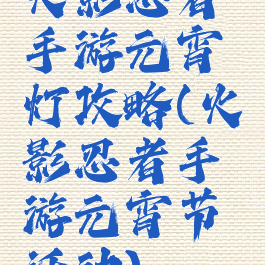 火影忍者
手游元宵
灯攻略(火
影忍者手
游元宵节
活动)